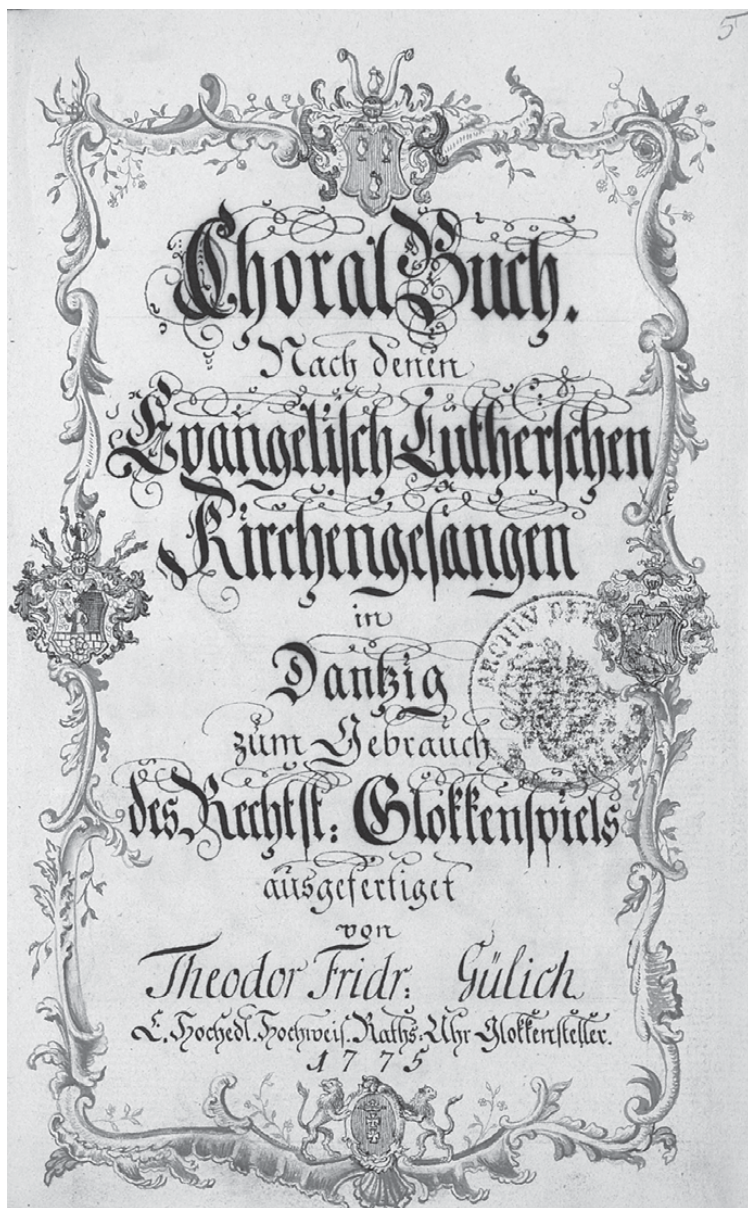 5
Choral Buch.
Nach denen
Evangelisch Lutherschen
Kirchengesängen
in
Dantzig
zum Gebrauch
des Rechtst: Glokkenspiels
ausgefertiget
von
Theodor Fridr: Gülich
E. Hochedl. Hochweis. Raths: Uhr Glokkensteller.
1775
ARCHIV DER